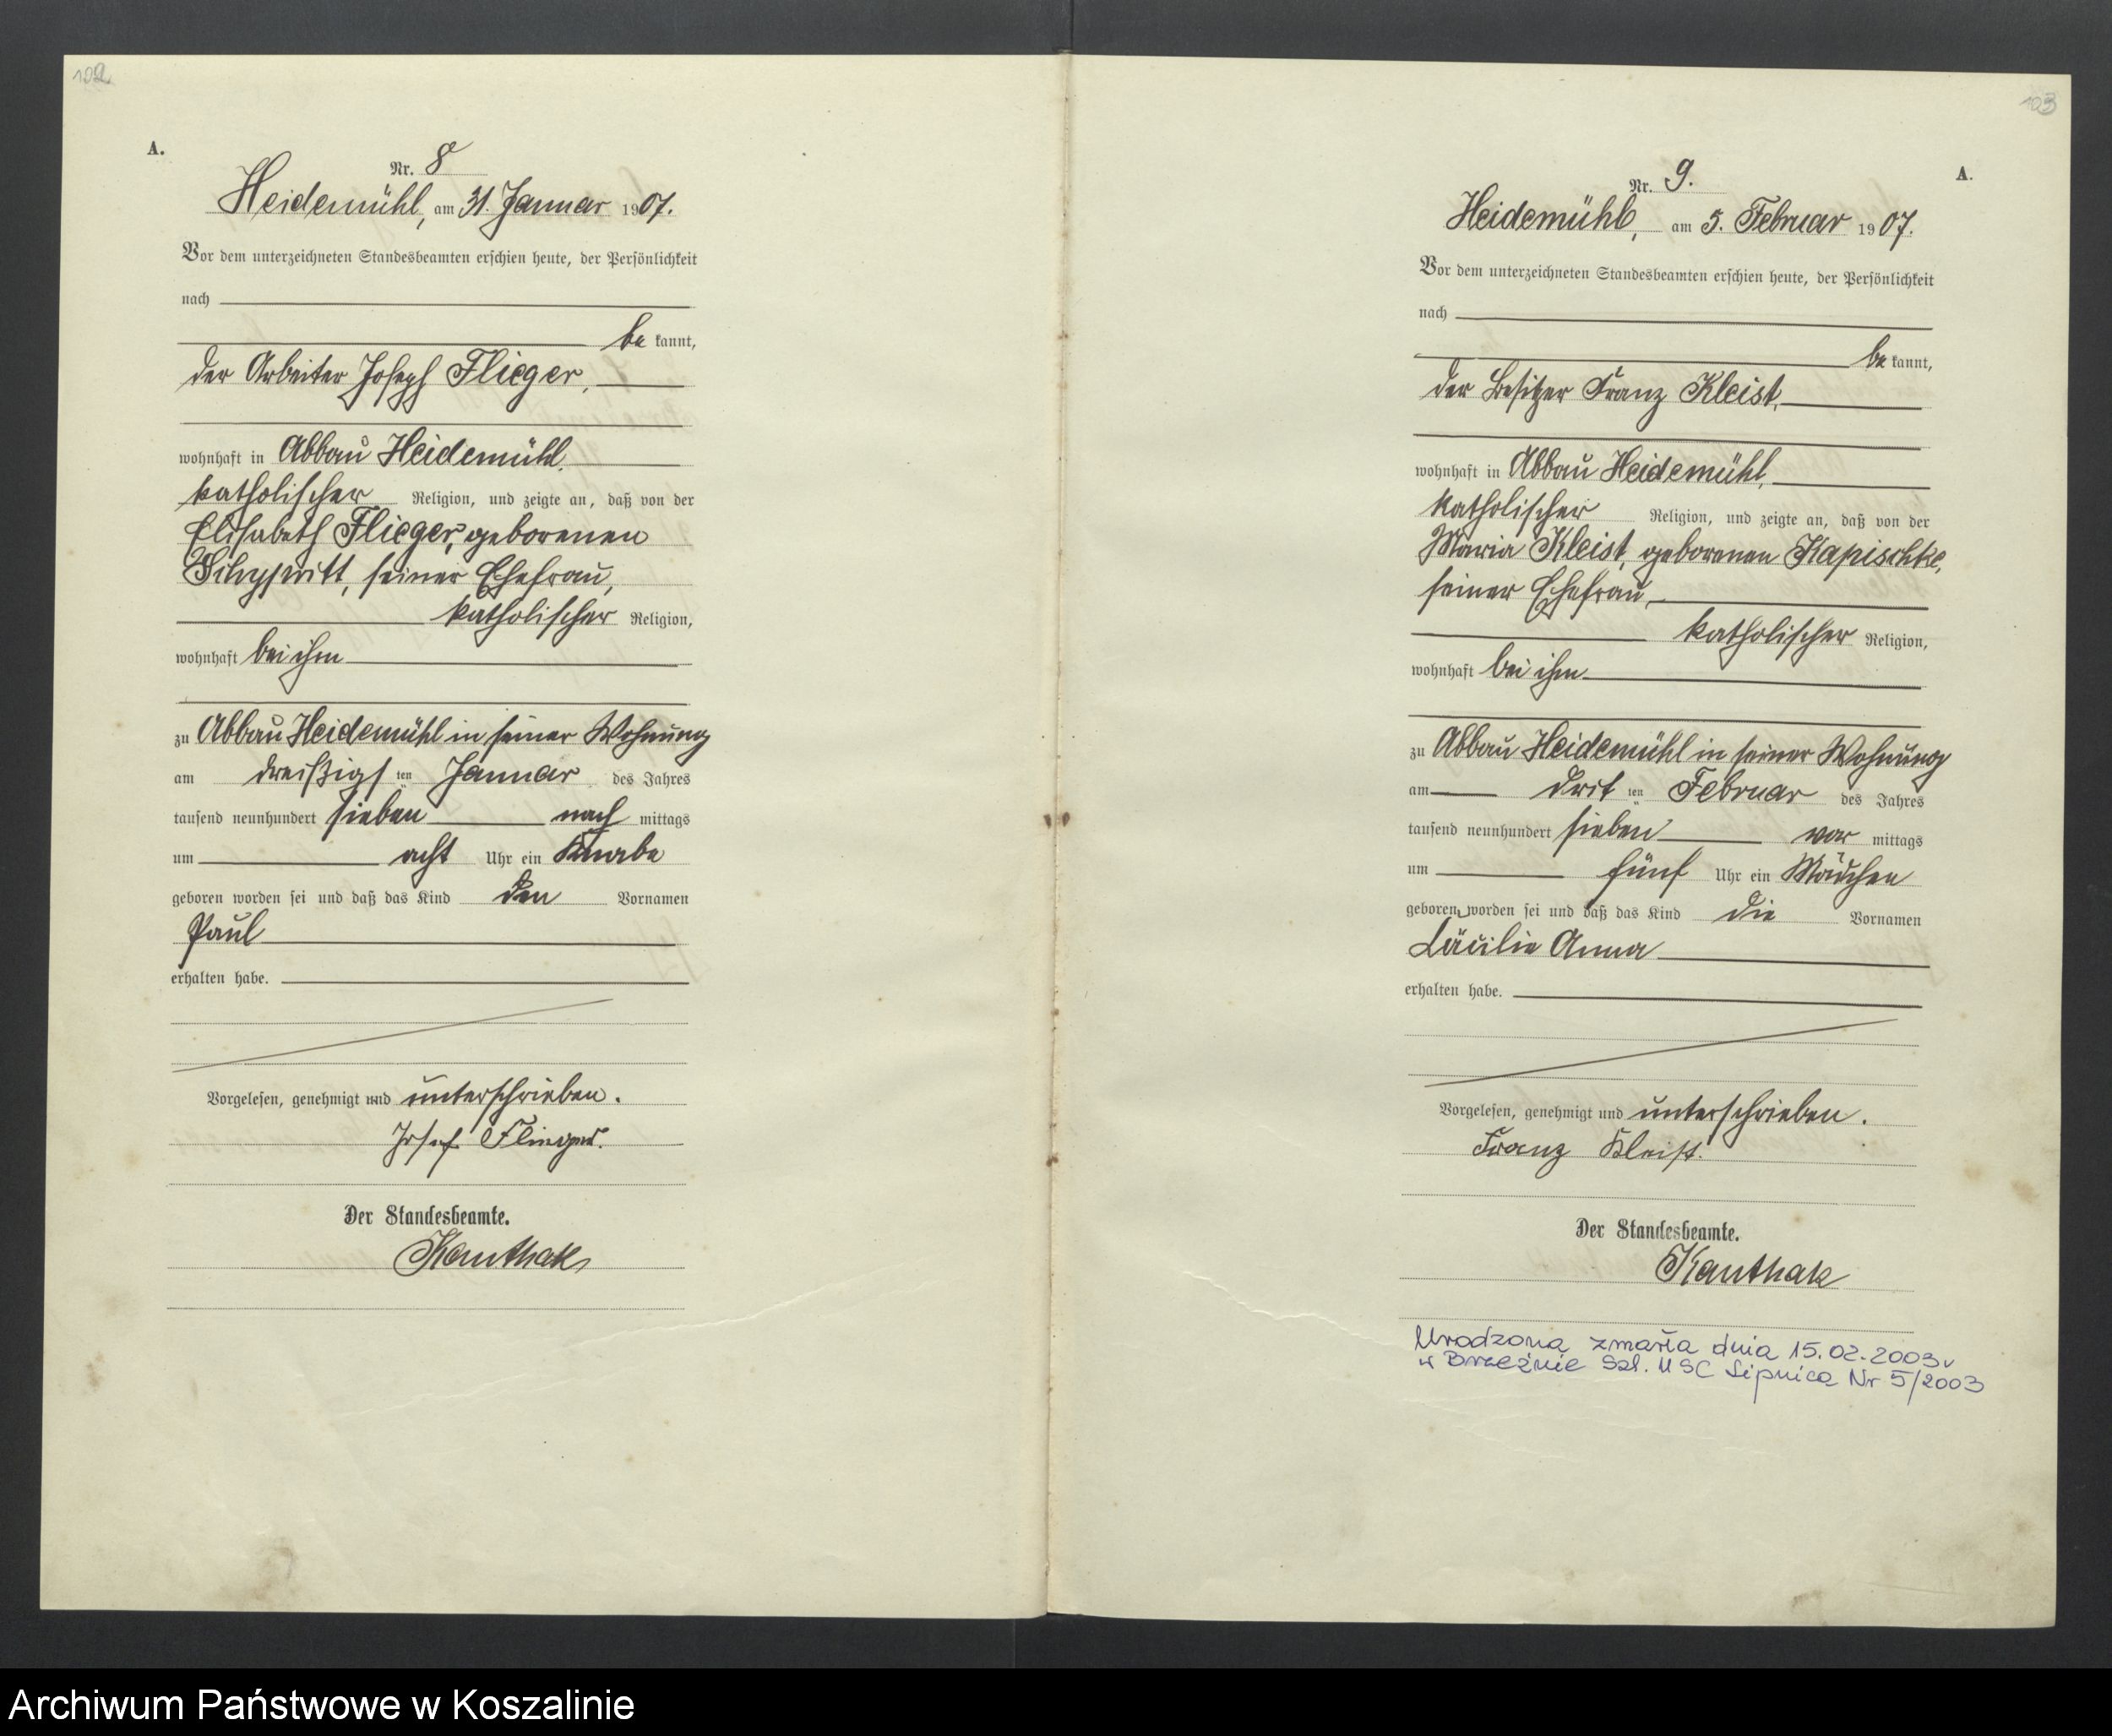 102
A.
Nr. 8
Heidemühl, am 31. Januar 1907.
Vor dem unterzeichneten Standesbeamten erschien heute, der Persönlichkeit
nach
be kannt,
der Arbeiter Joseph Flieger,
wohnhaft in Abbau Heidemühl,
katholischer Religion, und zeigte an, daß von der
Elisabeth Flieger, geborenen
seiner Ehefrau,
katholischer Religion,
wohnhaft bei ihm
zu Abbau Heidemühl in seiner Wohnung
am dreißigsten Januar des Jahres
tausend neunhundert sieben nach mittags
um acht Uhr ein Knabe
geboren worden sei und daß das Kind den Vornamen
Paul
erhalten habe.
Vorgelesen, genehmigt und unterschrieben.
Josef Flieger.
Der Standesbeamte.
Kanthak
103
A.
Nr. 9.
Heidemühl, am 5. Februar 1907.
Vor dem unterzeichneten Standesbeamten erschien heute, der Persönlichkeit
nach
be kannt,
der Besitzer Franz Kleist,
wohnhaft in Abbau Heidemühl,
katholischer Religion, und zeigte an, daß von der
Maria Kleist, geborenen Kapischke,
seiner Ehefrau,
katholischer Religion,
wohnhaft bei ihm
zu Abbau Heidemühl in seiner Wohnung
am dritten Februar des Jahres
tausend neunhundert sieben vor mittags
um fünf Uhr ein Mädchen
geboren worden sei und daß das Kind die Vornamen
Cäcilie Anna
erhalten habe.
Vorgelesen, genehmigt und unterschrieben.
Franz Kleist.
Der Standesbeamte.
Kanthak
Urodzona zmarła dnia 15.02.2003 r
w Brzeźnie Szl. USC Lipnica Nr 5/2003
Archiwum Państwowe w Koszalinie